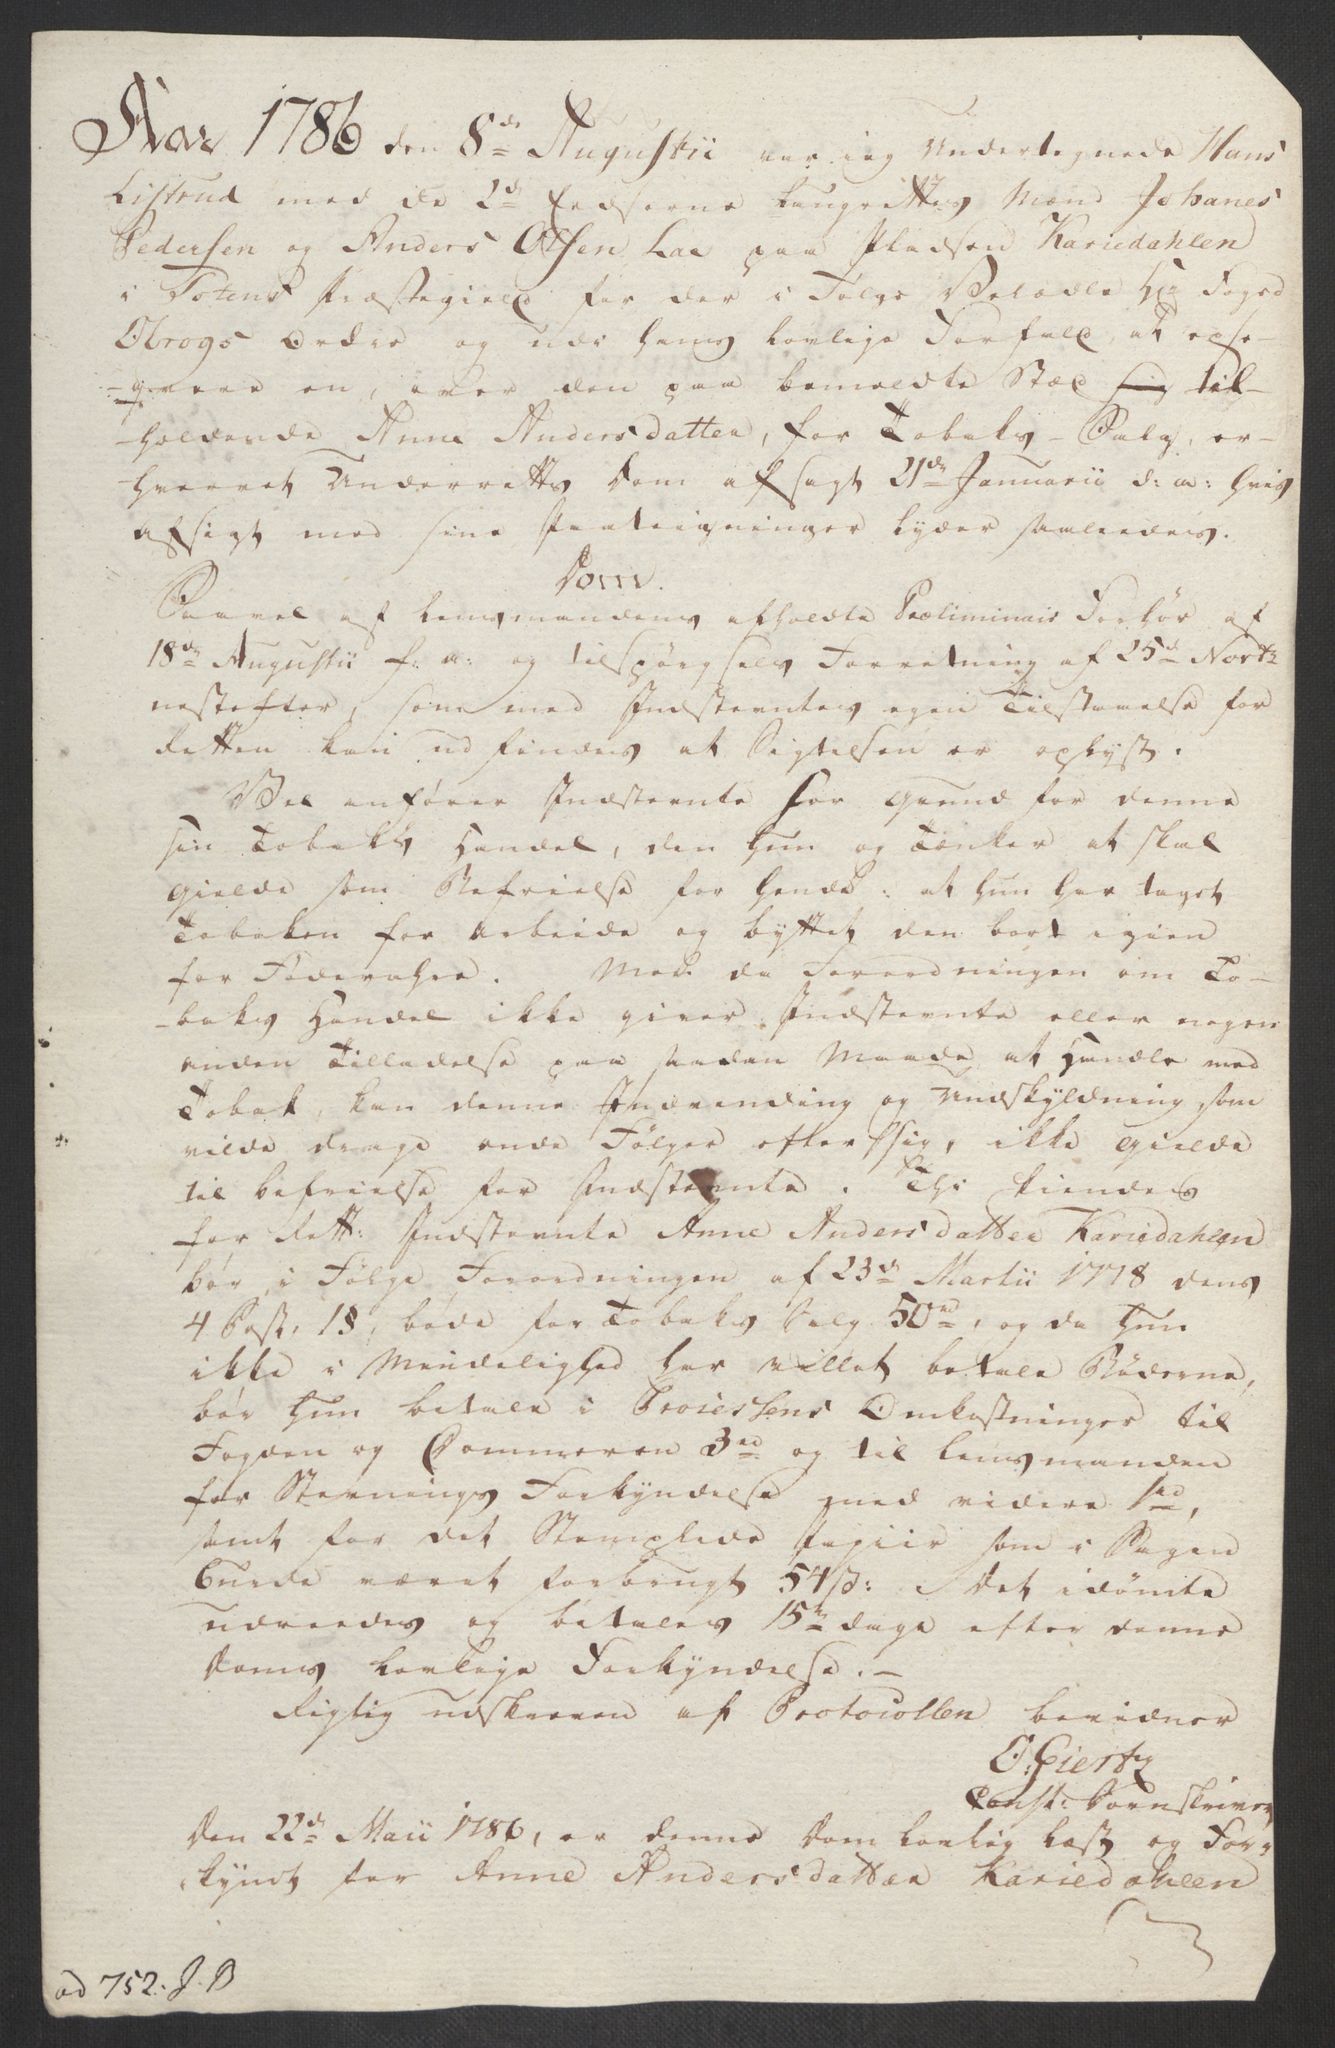 Aar 1786 den 8de Augustii var ieg Undertegnede Hans
Listrud med de 2de Eedsorne Laugrettes Mænd Johanes
Pedersen og Anders Olsen Lae paa Pladsen Kariedahlen
i Totens Præstegield for der i Følge Velædle Hr: Foged
Obrogs Ordre og udi hans lovlige Forfald, at exse-
-qvere en, over den paa bemeldte Stæd sig til-
-holdende Anne Andersdatter, for Tobaks-Salg, er-
-hvervet Underretts Dom afsagt 21de Januarii d: a: hvis
afsigt med sine Paateigninger lyder saaledes.
Dom.
Saavel af Lensmandens afholdte Præliminair Forhör af
18de Augustii f: a: og tilspörgsels Forretning af 25de Novbr:
nestefter, som med Indstevntes egen Tilstaaelse for
Retten kan udfindes at Sigtelsen er oplyst.
Vel anförer Indstevnte for grund for denne
sin Tobaks Handel, den hun og tænker at skal
gielde som Befrielse for hende: at hun har taget
Tobaken for arbeide og byttet den bort igien
for Födevahre. Men da Forordningen om To-
-baks Handel ikke giver Indstevnte eller nogen
anden Tilladelse paa saadan Maade at Handle med
Tobak, kan denne Indvending og Undskyldning som
vilde drage onde Fölger efter sig, ikke gielde
til befrielse for Indstevnte. Thi kiendes
for Rett: Indstevnte Anne Andersdatter Kariedahlen
bör, i Fölge Forordningen af 23de Martii 1778 dens
4 Post, 1§, bøde for Tobaks Salg 50rd, og da hun
ikke i Mindelighed har villet betale Böderne,
bör hun betale i Processens Omkostninger til
Fogden og Dommeren 3rd og til Lensmanden
for Stevnings Forkyndelse med videre 1rd,
samt for det Stemplede Papiir som i Sagen
burde været forbrugt 54ß: Det idömte
udreedes og betales 15ten dage efter denne
Doms lovlige Forkyndelse.-
Rigtig udskreven af Protocollen bevidner
O: Giertz
Const: Sorenskriver
Den 22de Maii 1786, er denne Dom lovlig læst og For-
kyndt for Anne Andersdatter Kariedahlen
ad 752. J. B